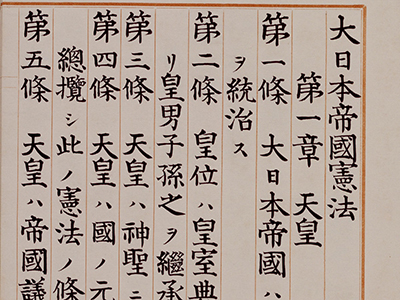 大日本帝國憲法
第一章 天皇
第一條 大日本帝國ハ
ヲ統治ス
第二條 皇位ハ皇室典
リ皇男子孫之ヲ繼承
第三條 天皇ハ神聖ニ
第四條 天皇ハ國ノ元
總攬シ此ノ憲法ノ條
第五條 天皇ハ帝國議